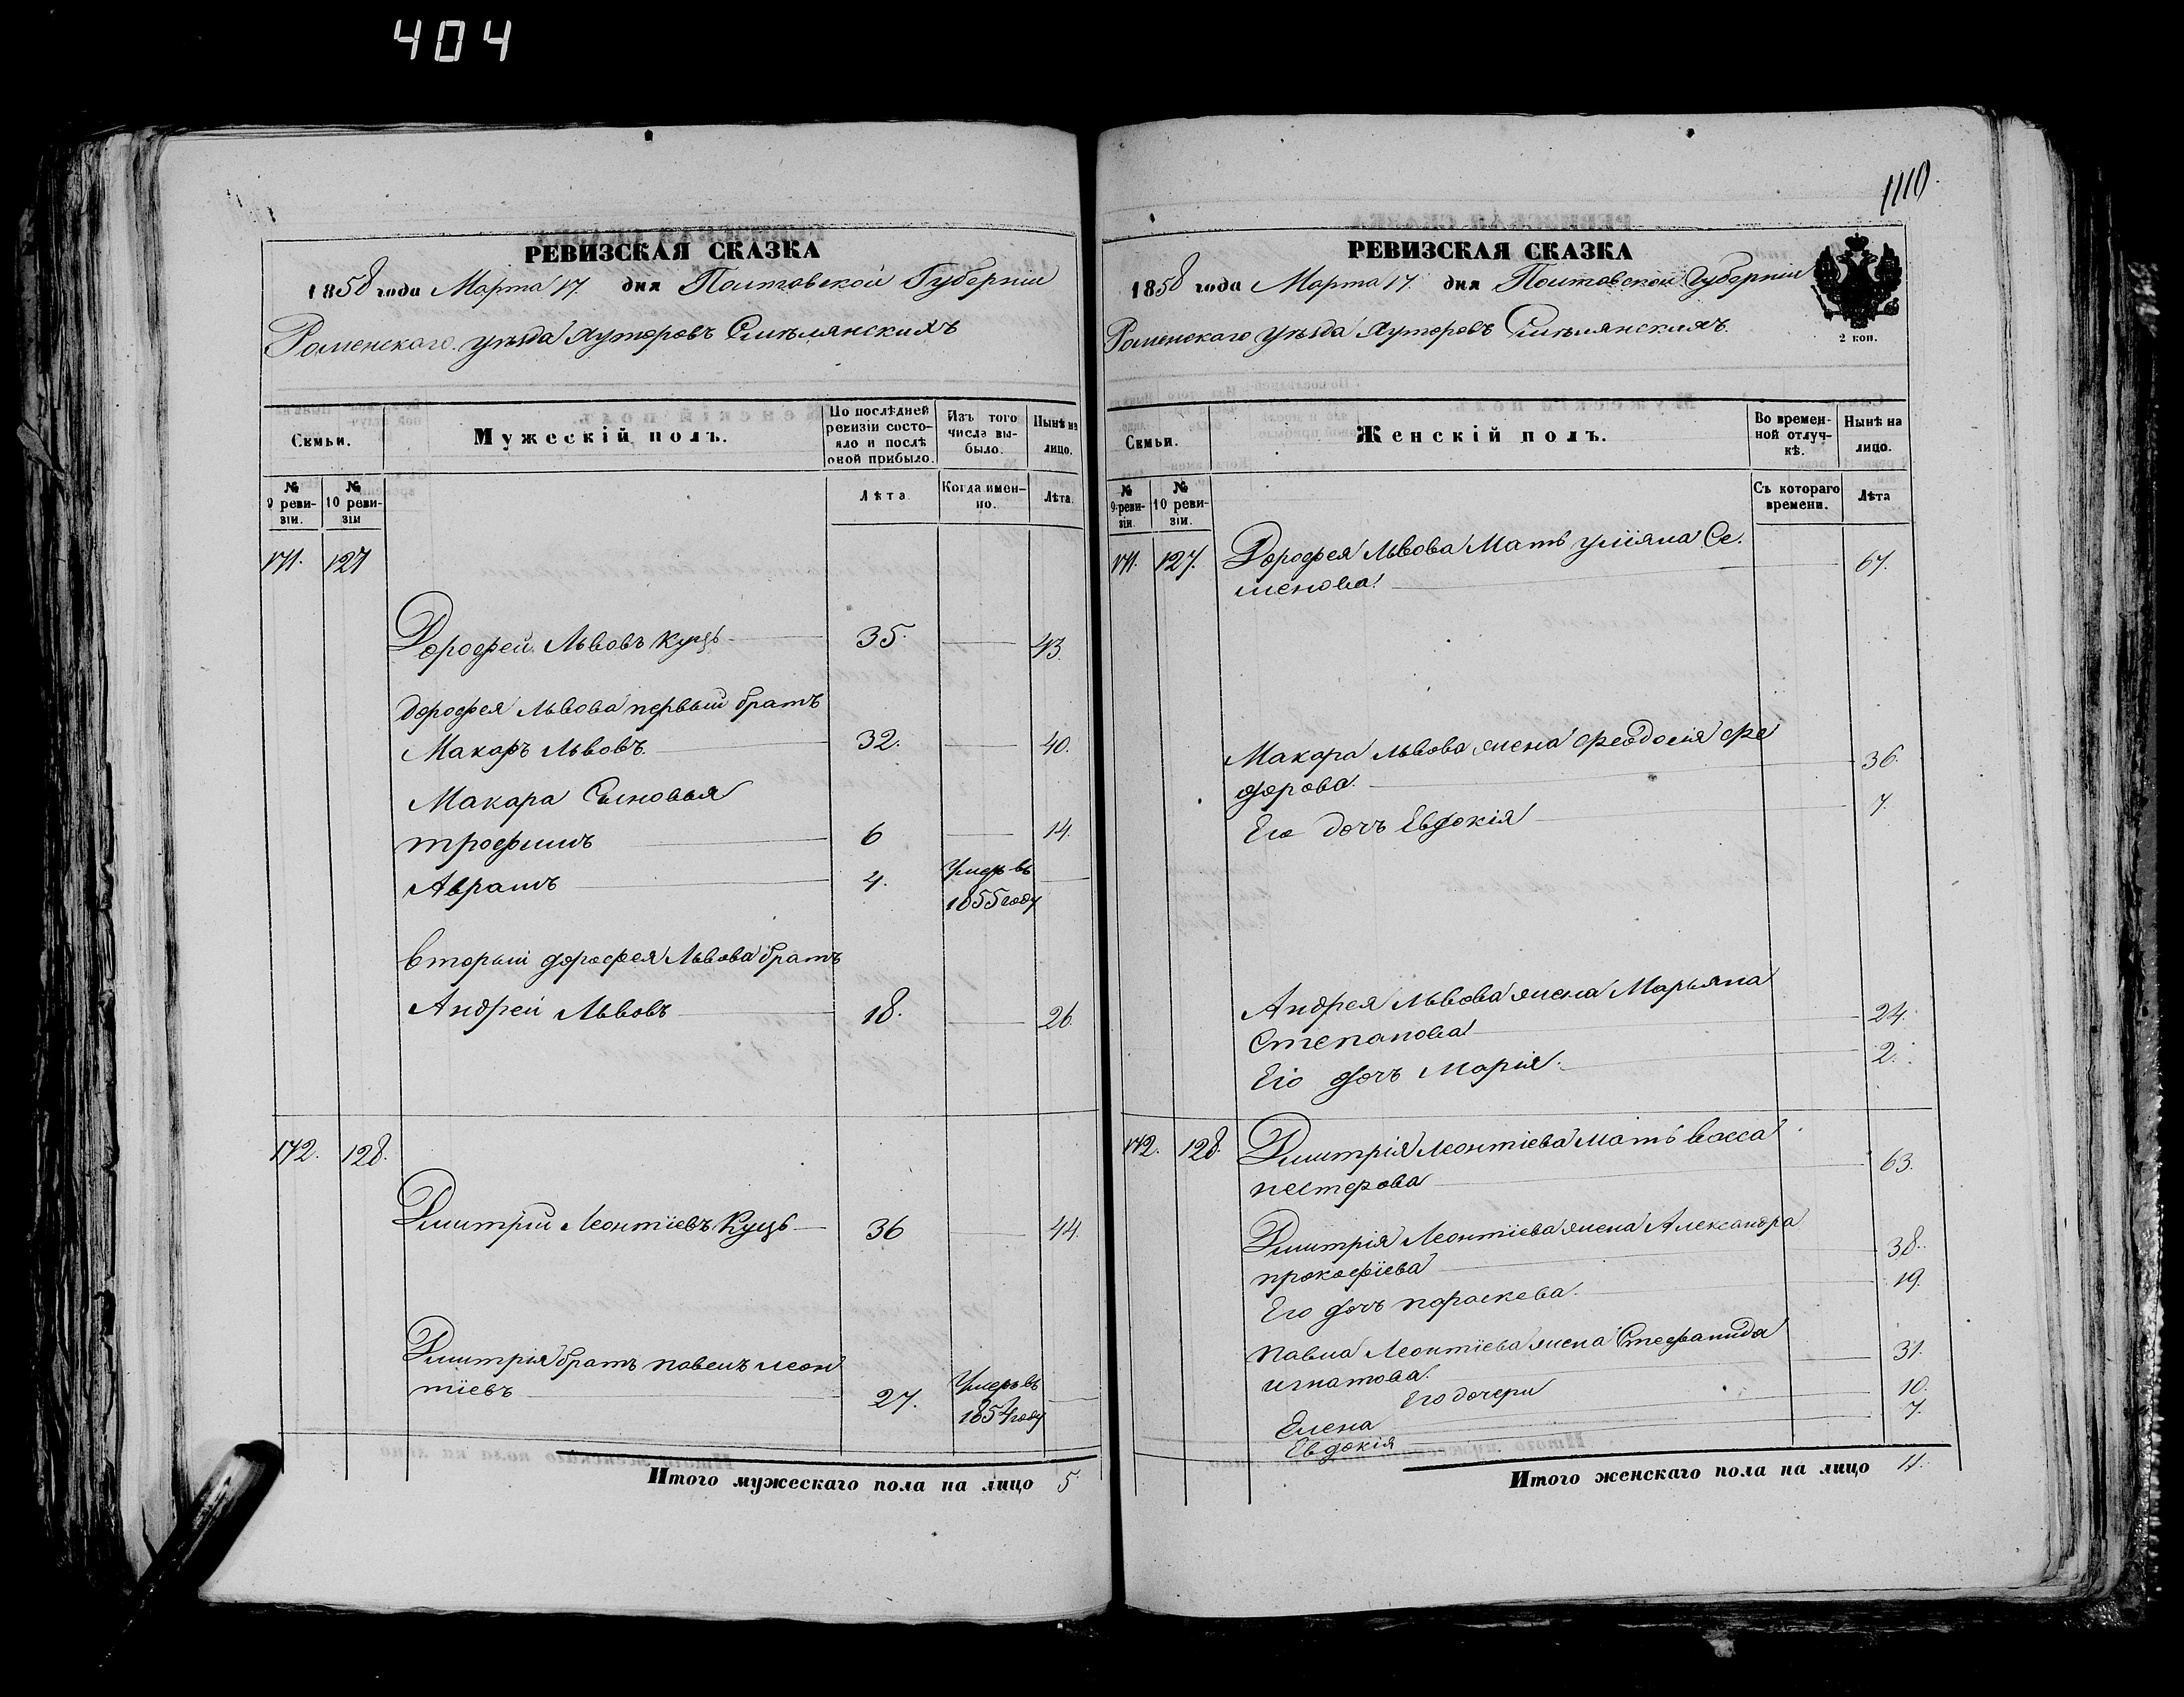 404
РЕВИЗСКАЯ СКАЗКА
1858 года Марта 17. дня Полтавской Губерніи
Роменскаго уѣзда хуторовъ Смѣлянскихъ
Семьи.
Мужескій полъ.
По послѣдней ревизіи состояло и послѣ оной прибыло.
Изъ того числа выбыло.
Нынѣ на лицо.
№ 9 ревизіи.
№ 10 ревизіи
Лѣта.
Когда именно.
Лѣта.
171. 127
Дорофей Львовъ Куцъ 35. 43.
дорофея Львова первый братъ
Макаръ Львовъ 32. 40.
Макара Сыновья
трофимъ 6 14.
Аврамъ 4. Умеръ въ
1855 году
вторый дорофея Львова братъ
Андрей Львовъ 18. 26.
172. 128.
Дмитрій Леонтіевъ Куцъ 36 44.
Дмитрія братъ павелъ леон
тіевъ 27. Умеръ въ
1854 году
Итого мужескаго пола на лицо 5
1110.
РЕВИЗСКАЯ СКАЗКА
1858 года Марта 17. дня Полтавской Губерніи
Роменскаго уѣзда хуторовъ Смѣлянскихъ.
2 коп.
Семьи.
Женскій полъ.
Во временной отлучкѣ.
Нынѣ на лицо.
№ 9 ревизіи.
№ 10 ревизіи.
Съ котораго времени.
Лѣта
171. 127. Дорофея Львова Мать уліяна Се.
менова. 67.
Макара львова жена феодосія фе
дорова. 36.
Его дочъ Евдокія 7.
Андрея львова жена Марьяна
Степанова 24.
Его дочъ Марія. 2.
172. 128. Дмитрія Леонтіева мать васса
нестерова 63.
Дмитрія Леонтіева жена Александра
прокофіева 38.
Его дочъ параскева. 19.
павла Леонтіева жена Стефанида
игнатова. 31.
Его дочери
Елена 10.
Евдокія 7.
Итого женскаго пола на лицо 11.